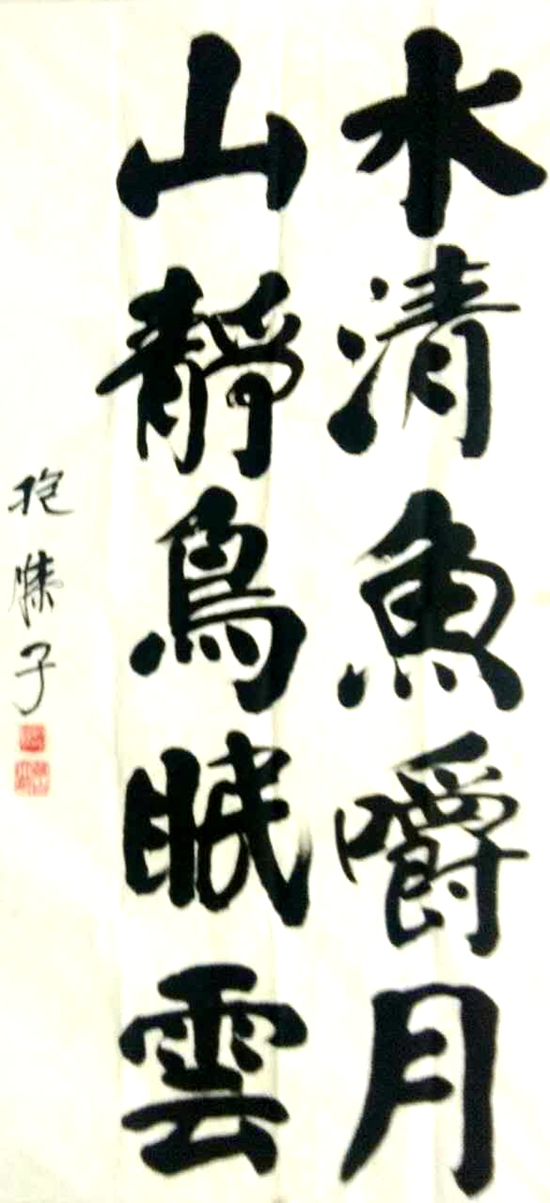 水清魚嚼月
山靜鳥眠雲
子